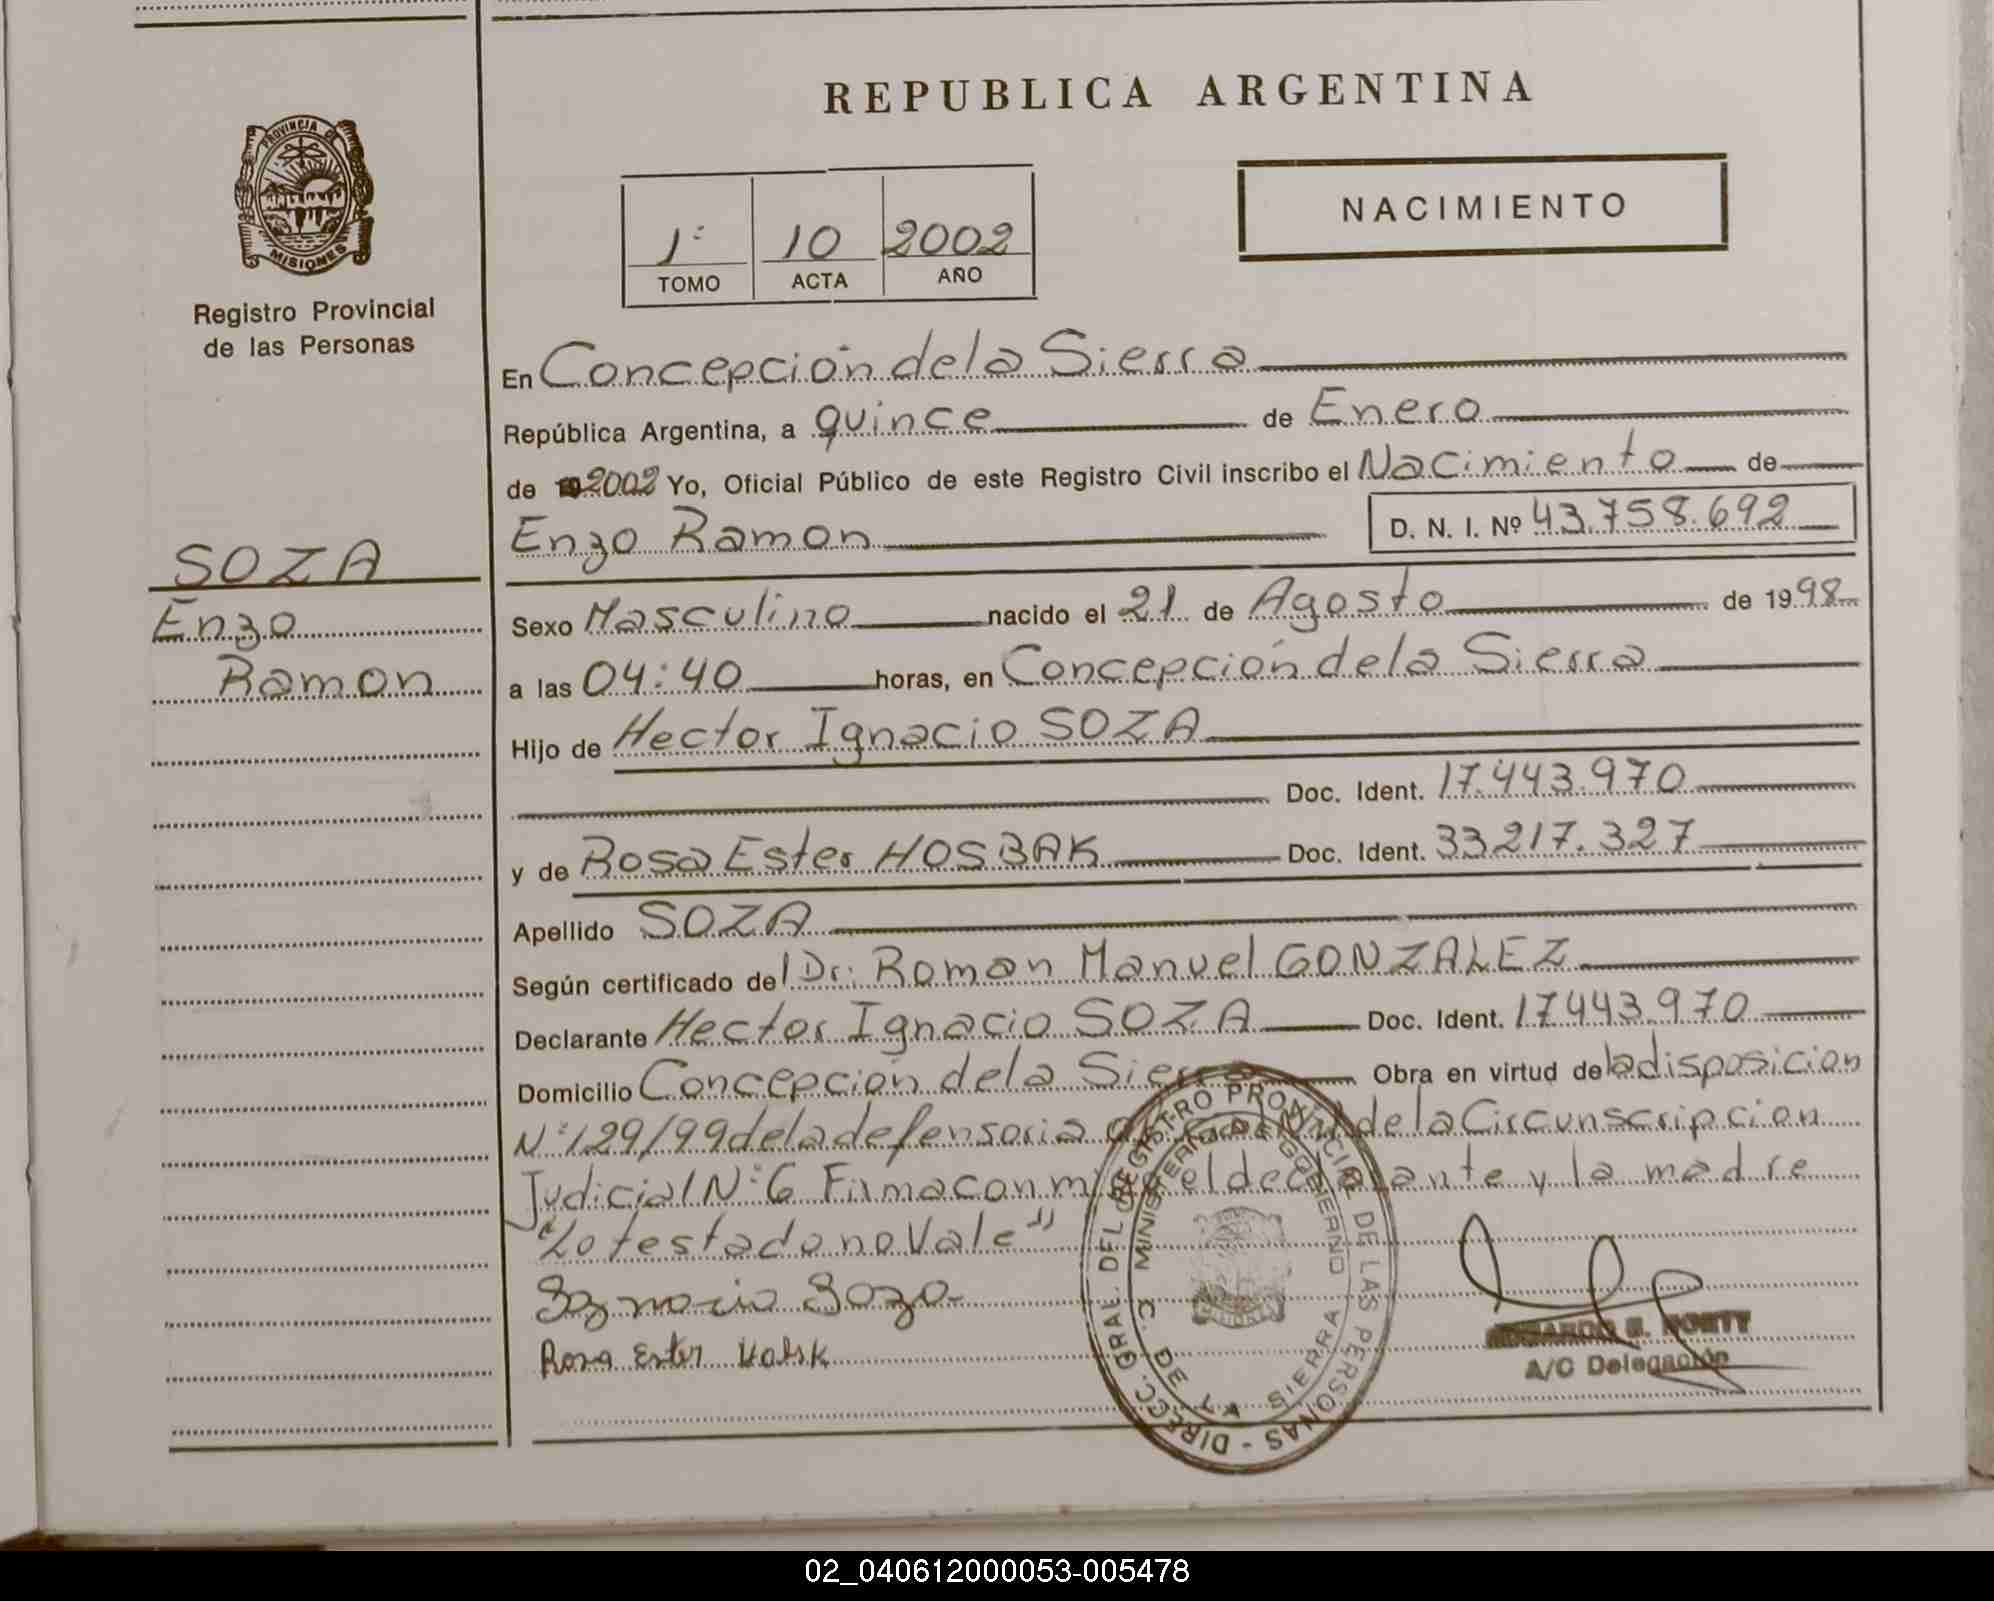 REPUBLICA ARGENTINA
PROVINCIA DE
MISIONES
Registro Provincial
de las Personas
NACIMIENTO
1º 10 2002
TOMO ACTA AÑO
En Concepción de la Sierra
República Argentina, a quince de Enero
de 2002 Yo, Oficial Público de este Registro Civil inscribo el Nacimiento de
Enzo Ramon D. N. I. Nº 43.758.692
SOZA
Enzo
Ramon
Sexo Masculino nacido el 21 de Agosto de 1998
a las 04:40 horas, en Concepción de la Sierra
Hijo de Hector Ignacio SOZA
Doc. Ident. 17.443.970
y de Rosa Ester HOSBAK Doc. Ident. 33.217.327
Apellido SOZA
Según certificado del Dr. Roman Manuel GONZALEZ
Declarante Hector Ignacio SOZA Doc. Ident. 17443.970
Domicilio Concepción de la Sierra Obra en virtud de la disposicion
Nº 129/99 de la defensoria de la Circunscripcion
Judicial Nº 6 Firma con migo el declarante y la madre
"Lo testado no Vale"
Ignacio Soza
Rosa Ester
DIRECC. GRAL. DEL REGISTRO PROVINCIAL DE LAS PERSONAS -
MINISTERIO DE GOBIERNO
C. DE LA SIERRA
A/C Delegación
02_040612000053-005478